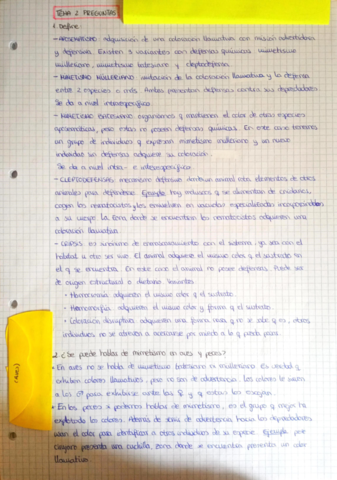 TEMA 2 PREGUNTAS
1. Define:
- APOSEMATISMO: adquisición de una coloración llamativa con misión advertidora
y defensiva. Existen 3 variantes con defensas químicas: mimetismo
mülleriano, mimetismo batesiano y cleptodefensa.
- MIMETISMO MÜLLERIANO: imitación de la coloración llamativa y la defensa
entre 2 especies o más. Ambas presentan defensas contra sus depredadores.
Se da a nivel interespecífico.
- MIMETISMO BATESIANO: organismos q mantienen el color de otras especies
aposemáticas, pero estas no poseen defensas químicas. En este caso tenemos
un grupo de individuos q expresan mimetismo mülleriano y un nuevo
individuo sin defensas adquiere su coloración.
Se da a nivel intra- e interespecífico.
- CLEPTODEFENSA: mecanismo defensivo donde un animal roba elementos de otros
animales para defenderse. Ejemplo: hay moluscos q se alimentan de cnidarios,
cogen los nematocistos y los envuelven en vacuolas especializadas incorporándolos
a su cuerpo. La zona donde se encuentran los nematocistos adquieren una
coloración llamativa.
- CRIPSIS: es sinónimo de enmascaramiento con el sistema, ya sea con el
hábitat u otro ser vivo. El animal adquiere el mismo color q el sustrato en
el q se encuentra. En este caso el animal no posee defensas. Puede ser
de origen estructural o dietario. Variantes:
· Homocromía: adquieren el mismo color q el sustrato.
· Homomorfía: adquieren el mismo color y forma q el sustrato.
· Coloración disruptiva: adquieren una forma rara q no se sabe q es, otros
individuos no se atreven a acercarse por miedo a lo q pueda pasar.
2. ¿Se puede hablar de mimetismo en aves y peces?
· En aves no se habla de mimetismo batesiano ni mülleriano. Es verdad q
exhiben colores llamativos, pero no son de advertencia. Los colores le sirven
a los ♂ para exhibirse ante las ♀ y estas los escojan.
· En los peces sí podemos hablar de mimetismo, es el grupo q mejor ha
explotado los colores. Además de servir de advertencia hacia los depredadores
usan el color para identificar a otros individuos de su especie. Ejemplo: pez
cirujano presenta una cuchilla, zona donde se encuentra presenta un color
llamativo.